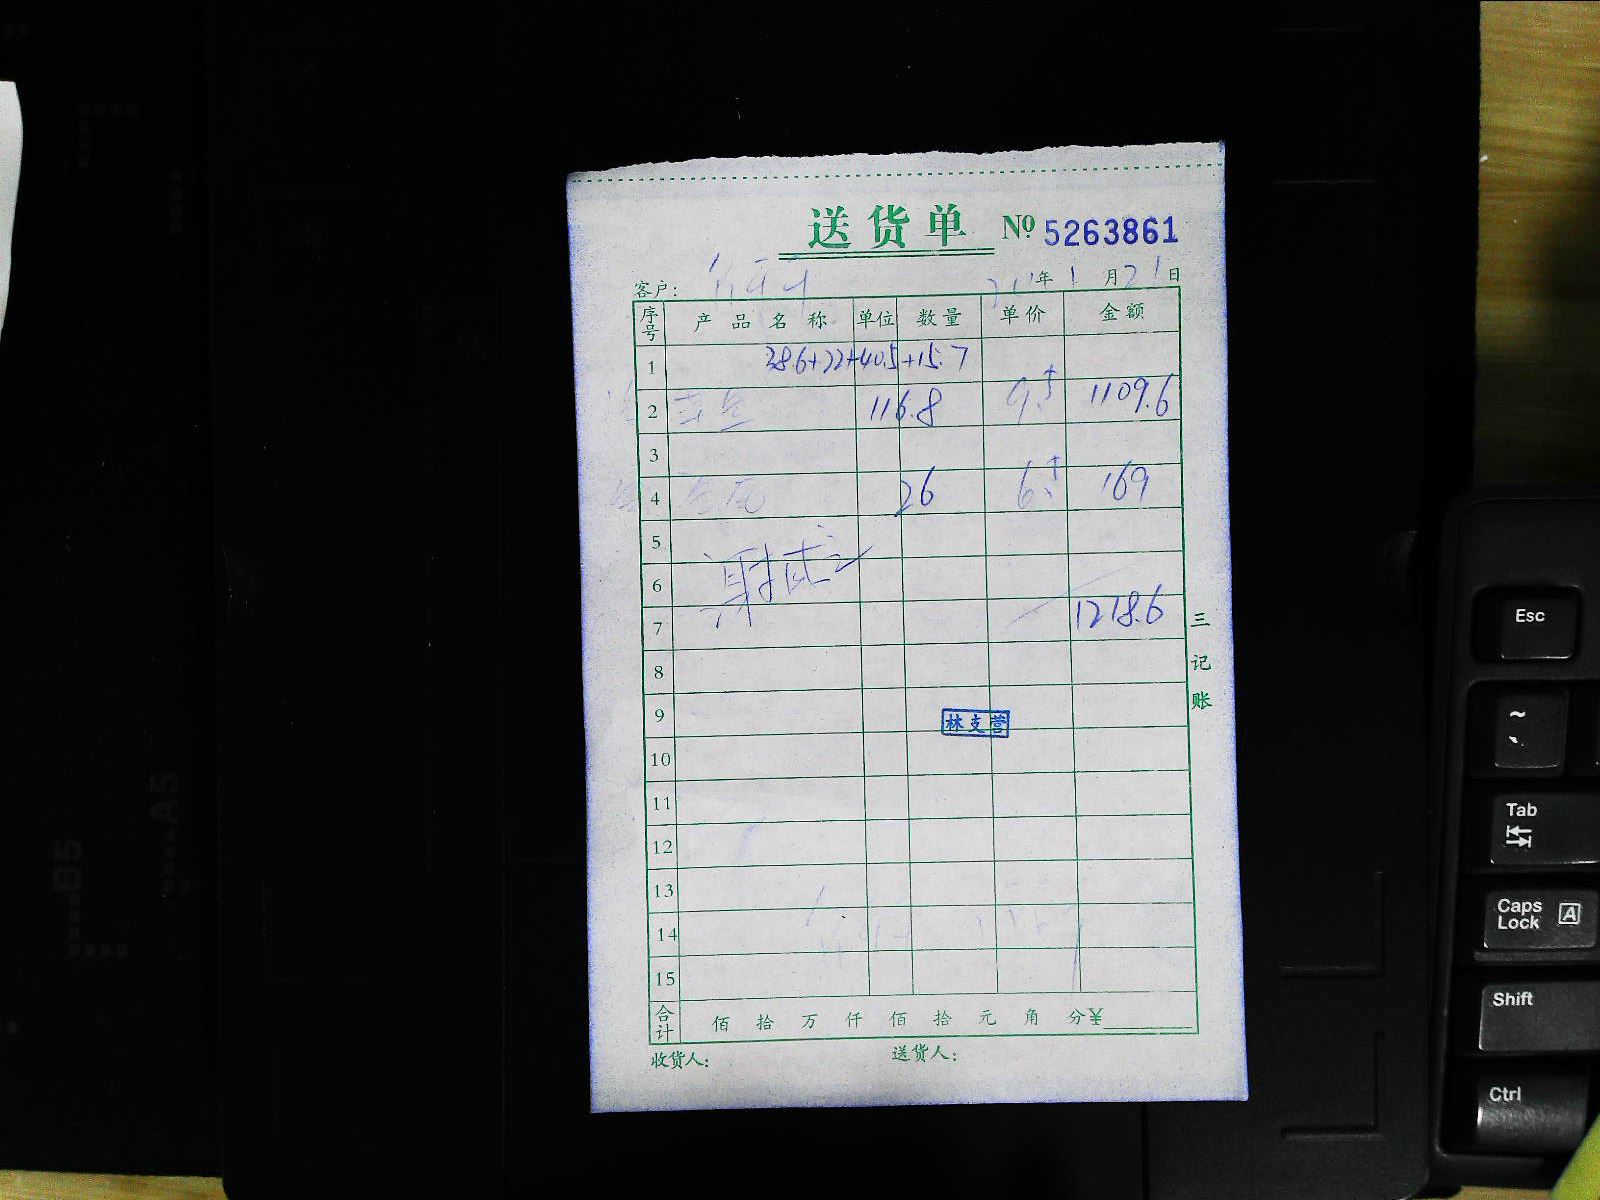 送货单 № 5263861
客户: 年 1 月 21 日
序号 产品名称 单位 数量 单价 金额
1 38.6+22+40.5+15.7
2 116.8 9.5 1109.6
3
4 26 6.5 169
5
6
7 1218.6
8
9 林支营
10
11
12
13
14
15
合计 佰 拾 万 仟 佰 拾 元 角 分¥
收货人: 送货人:
三记账
B5
A5
Esc
~
`
Tab
Caps Lock A
Shift
Ctrl